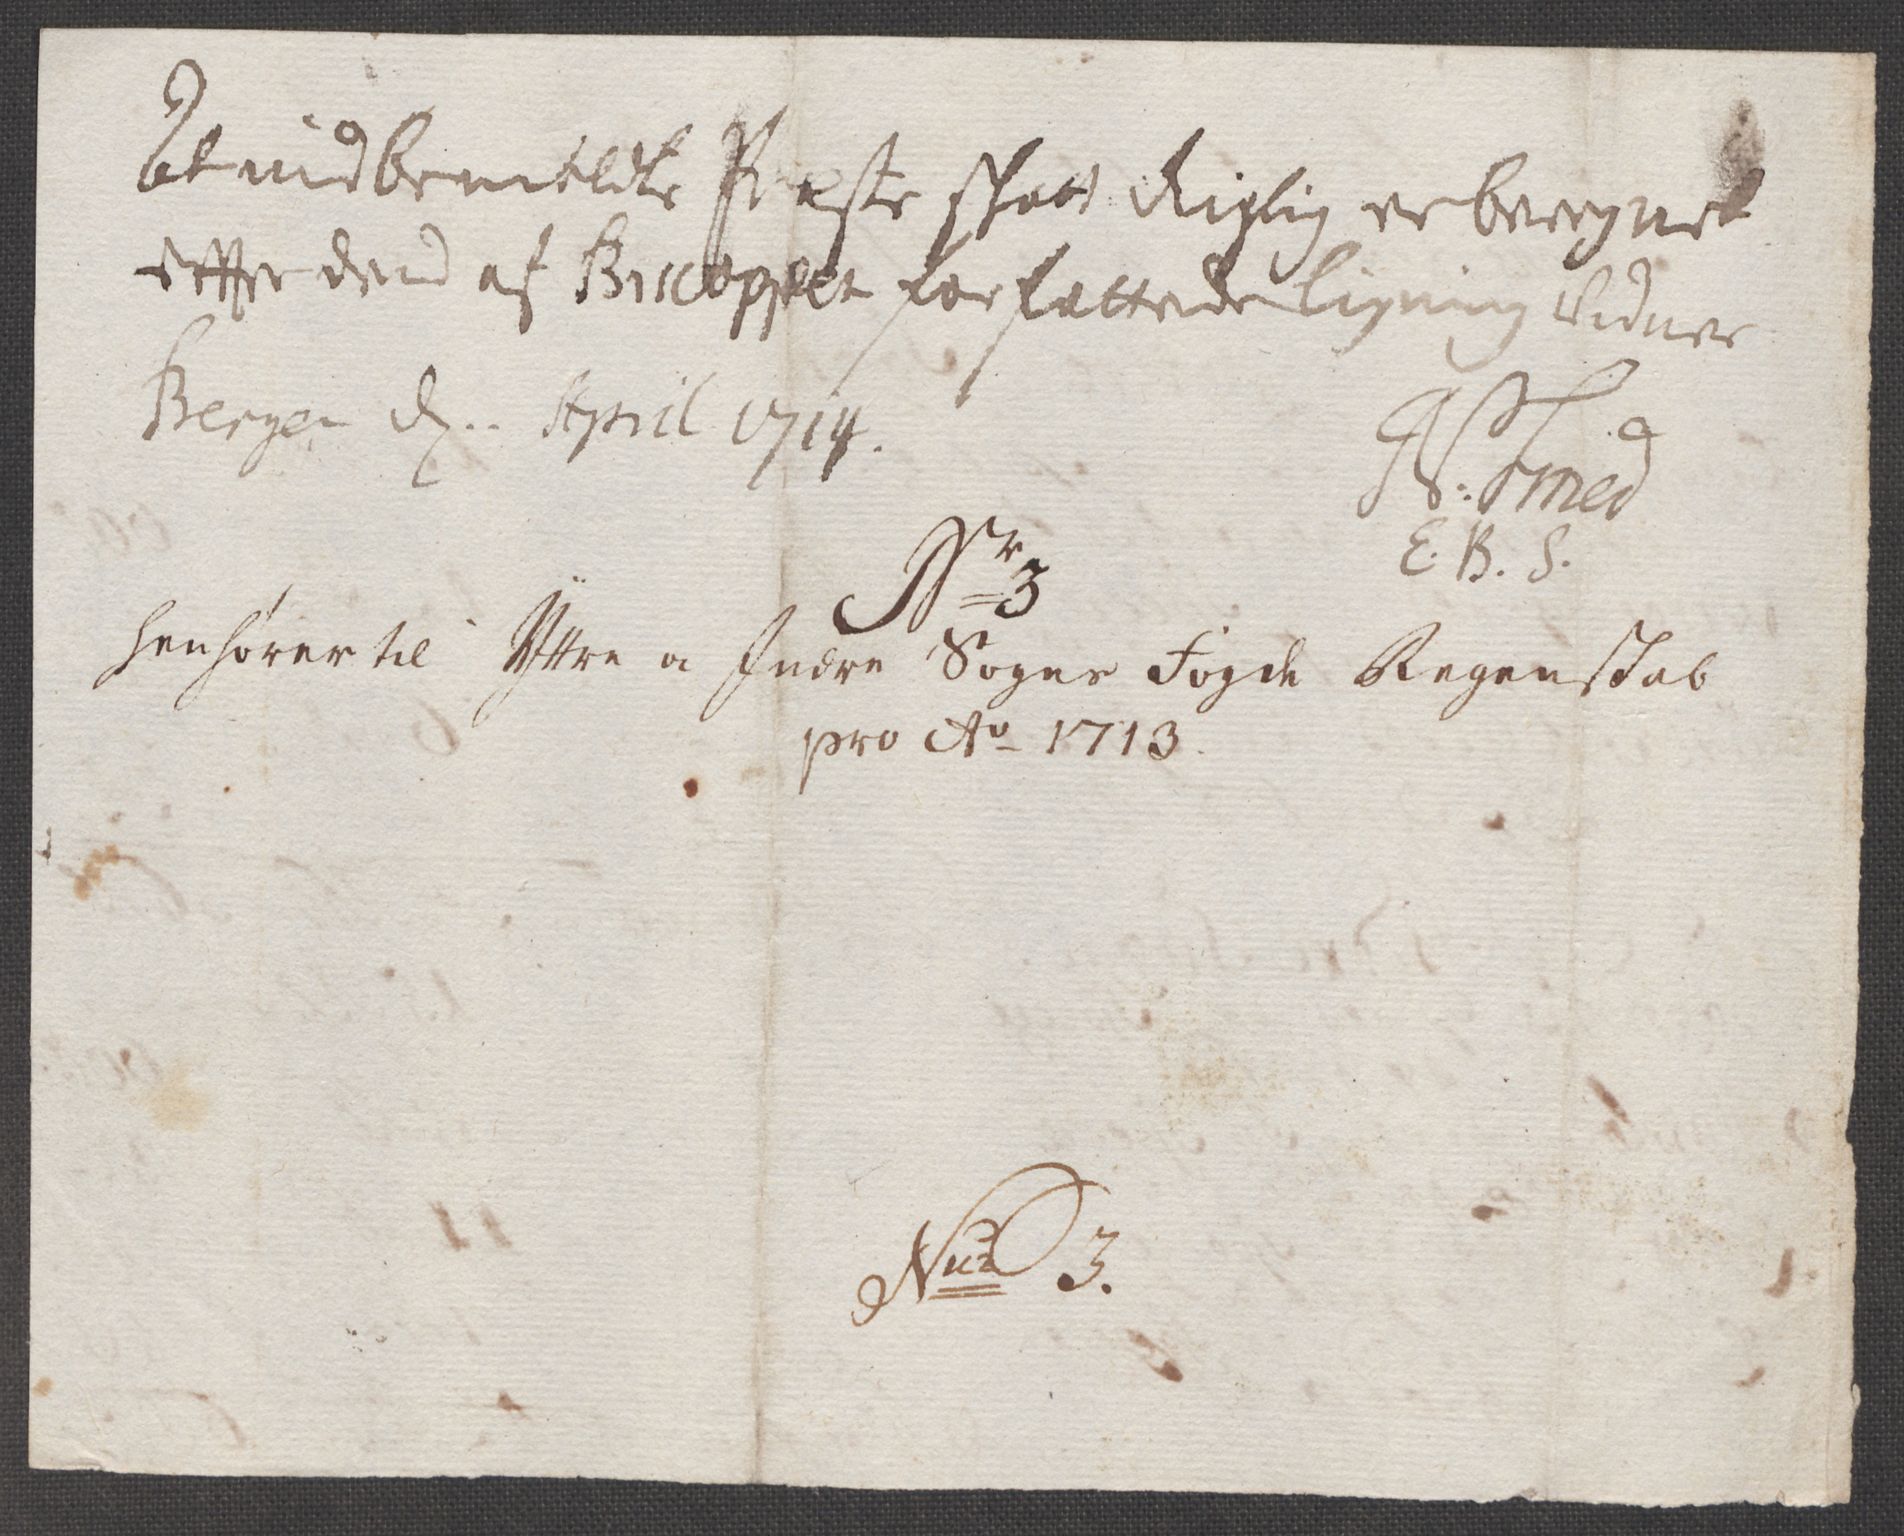 At indbemeldte Præste skatt Rigtig er beregnet
effter dend af Biscoppen forfattede Ligning Vidner
Bergen d.. April 1714.
N: Smed
E. B. S.
Nr 3
henhører til Yttre oc Indre Sogns Fogde Regenskab
pro Ao 1713.
No 3.